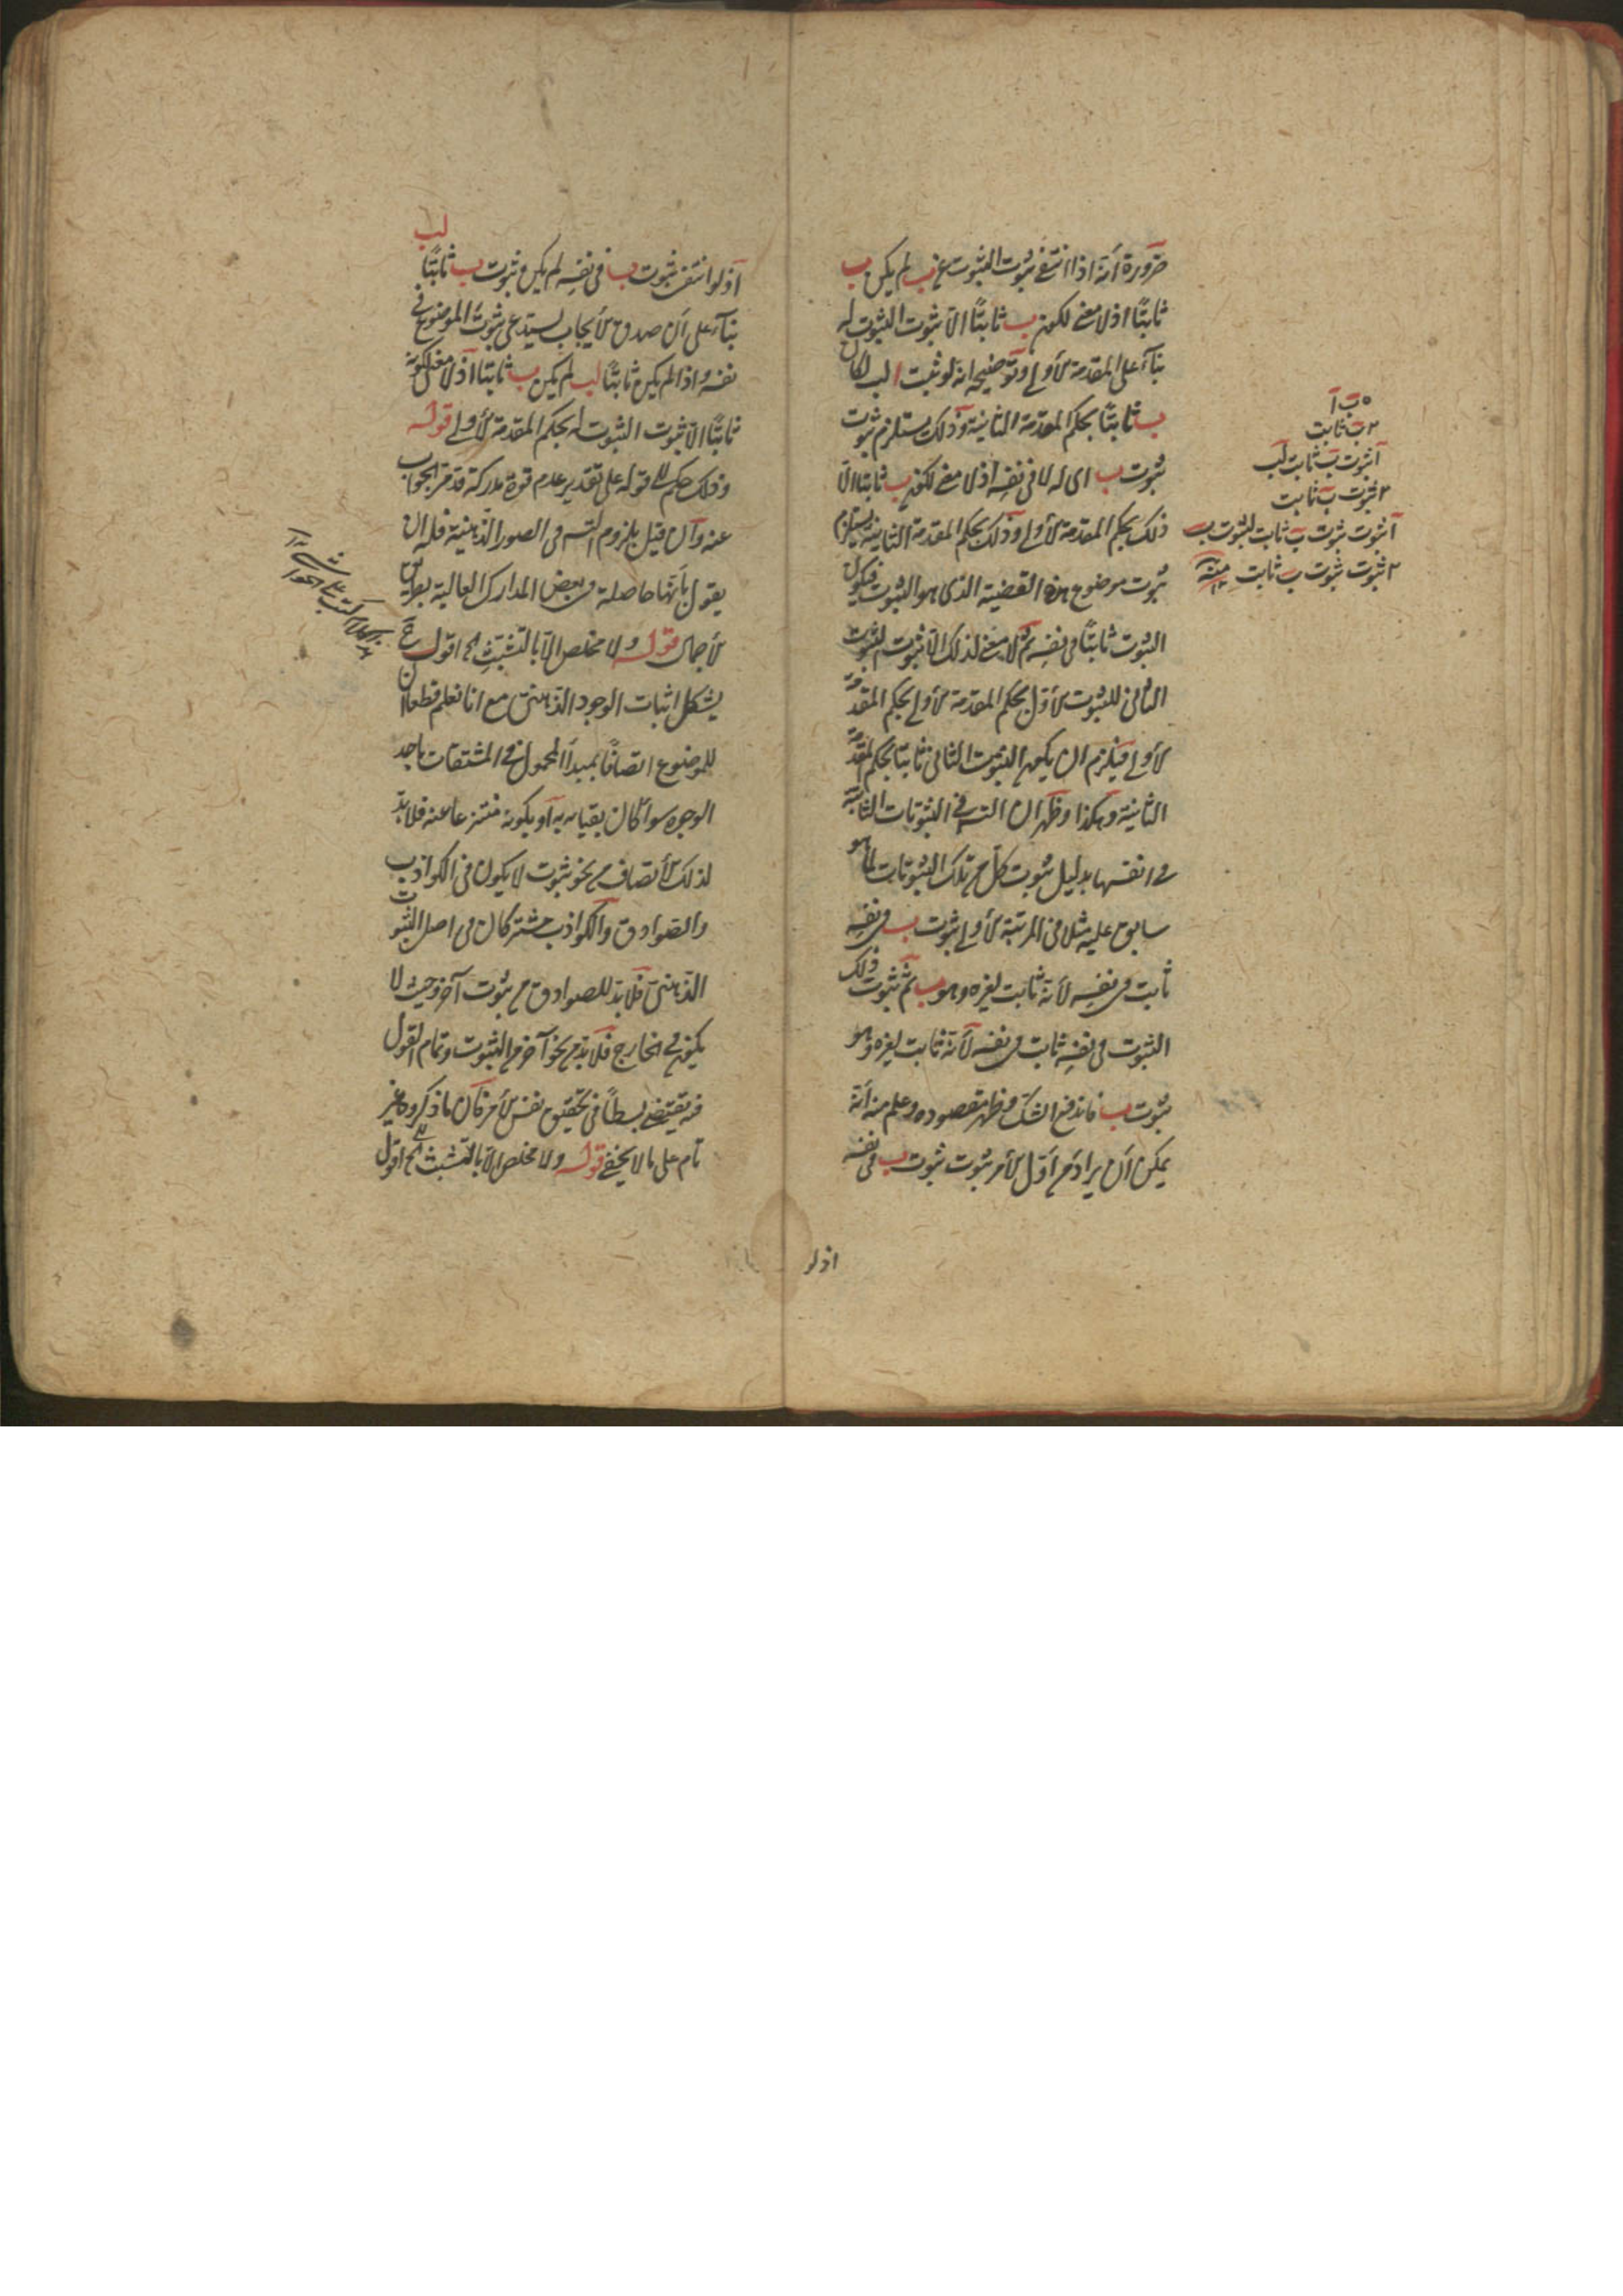 ضرورة أنه اذا انتفى ثبوت الثبوت عن ب لم يكن ب
ثابتًا اذ لا معنى لكون ب ثابتًا الّا ثبوت الثبوت له
بنآء على المقدمة الأولى وتوضيحه انه لو ثبت ا لب لكان
ب ثابتًا بحكم المقدمة الثانية وذلك يستلزم ثبوت
ثبوت ب اى له لا فى نفسه اذ لا معنى لكون ب ثابتا الّا
ذلك بحكم المقدمة الأولى وذلك بحكم المقدمة الثانية يستلزم
ثبوت موضوع هذه القضية الذى هو الثبوت فيكون
الثبوت ثابتًا فى نفسه ثم لا معنى لذلك الّا ثبوت الثبوت
الثانى للثبوت الأول بحكم المقدمة الأولى بحكم المقدمة
الأولى فيلزم ان يكون الثبوت الثانى ثابتا بحكم المقدمة
الثانية وهكذا وظهر ان التس فى الثبوتات الثابتة
فى انفسها بدليل ثبوت كل من تلك الثبوتات لما هو
سابق عليه مثلا فى المرتبة الأولى ثبوت ب فى نفسه
ثابت فى نفسه لأنه ثابت لغيره وهو ب ثم ثبوت ذلك
الثبوت فى نفسه ثابت فى نفسه لأنه ثابت لغيره وهو
ثبوت ب فاندفع الشك وظهر مقصوده وعلم منه أنه
يمكن أن يراد من أول الأمر ثبوت ثبوت ب فى نفسه
ب آ
ب ثابت
آ ثبوت ب ثابت لب
ثبوت ب ثابت
آ ثبوت ثبوت ب ثابت لثبوت ب
ثبوت ثبوت ب ثابت منه
اذ لو
لب
اذ لو انتفى ثبوت ب فى نفسه لم يكن ثبوت ب ثابتًا
بنآء على أن صدق الأيجاب يستدعى ثبوت الموضوع فى
نفسه واذا لم يكن ثابتًا لب لم يكن ب ثابتا اذ لا معنى لكونه
ثابتًا الّا ثبوت الثبوت له بحكم المقدمة الأولى قوله
وذلك حكم قوله على تقدير عدم قوة مدركة قد مر الجواب
عنه وان قيل بلزوم التس فى الصور الذهنية فله ان
يقول بأنها حاصلة فى بعض المدارك العالية بطريق
الأجمال قوله ولا مخلص الّا بالتشبث الخ اقول ح
يشكل اثبات الوجود الذهنى مع انا نعلم قطعا ان
للموضوع اتصافًا بمبدأ المحمول فى المشتقات باحد
الوجوه سوآء كان بقيامه به أو بكونه منتزعا عنه فلا بد
لذلك الأتصاف من نحو ثبوت لا يكون فى الكواذب
والصوادق والكواذب مشتركان فى اصل الثبوت
الذهنى فلا بد للصوادق من ثبوت آخر وحيث لا
يكون فى الخارج فلا بد من نحو آخر من الثبوت وتمام القول
فيه يقتضى بسطًا فى تحقيق نفس الأمر فان ما ذكروه غير
تام على ما لا يخفى قوله ولا مخلص الّا بالتشبث الخ اقول